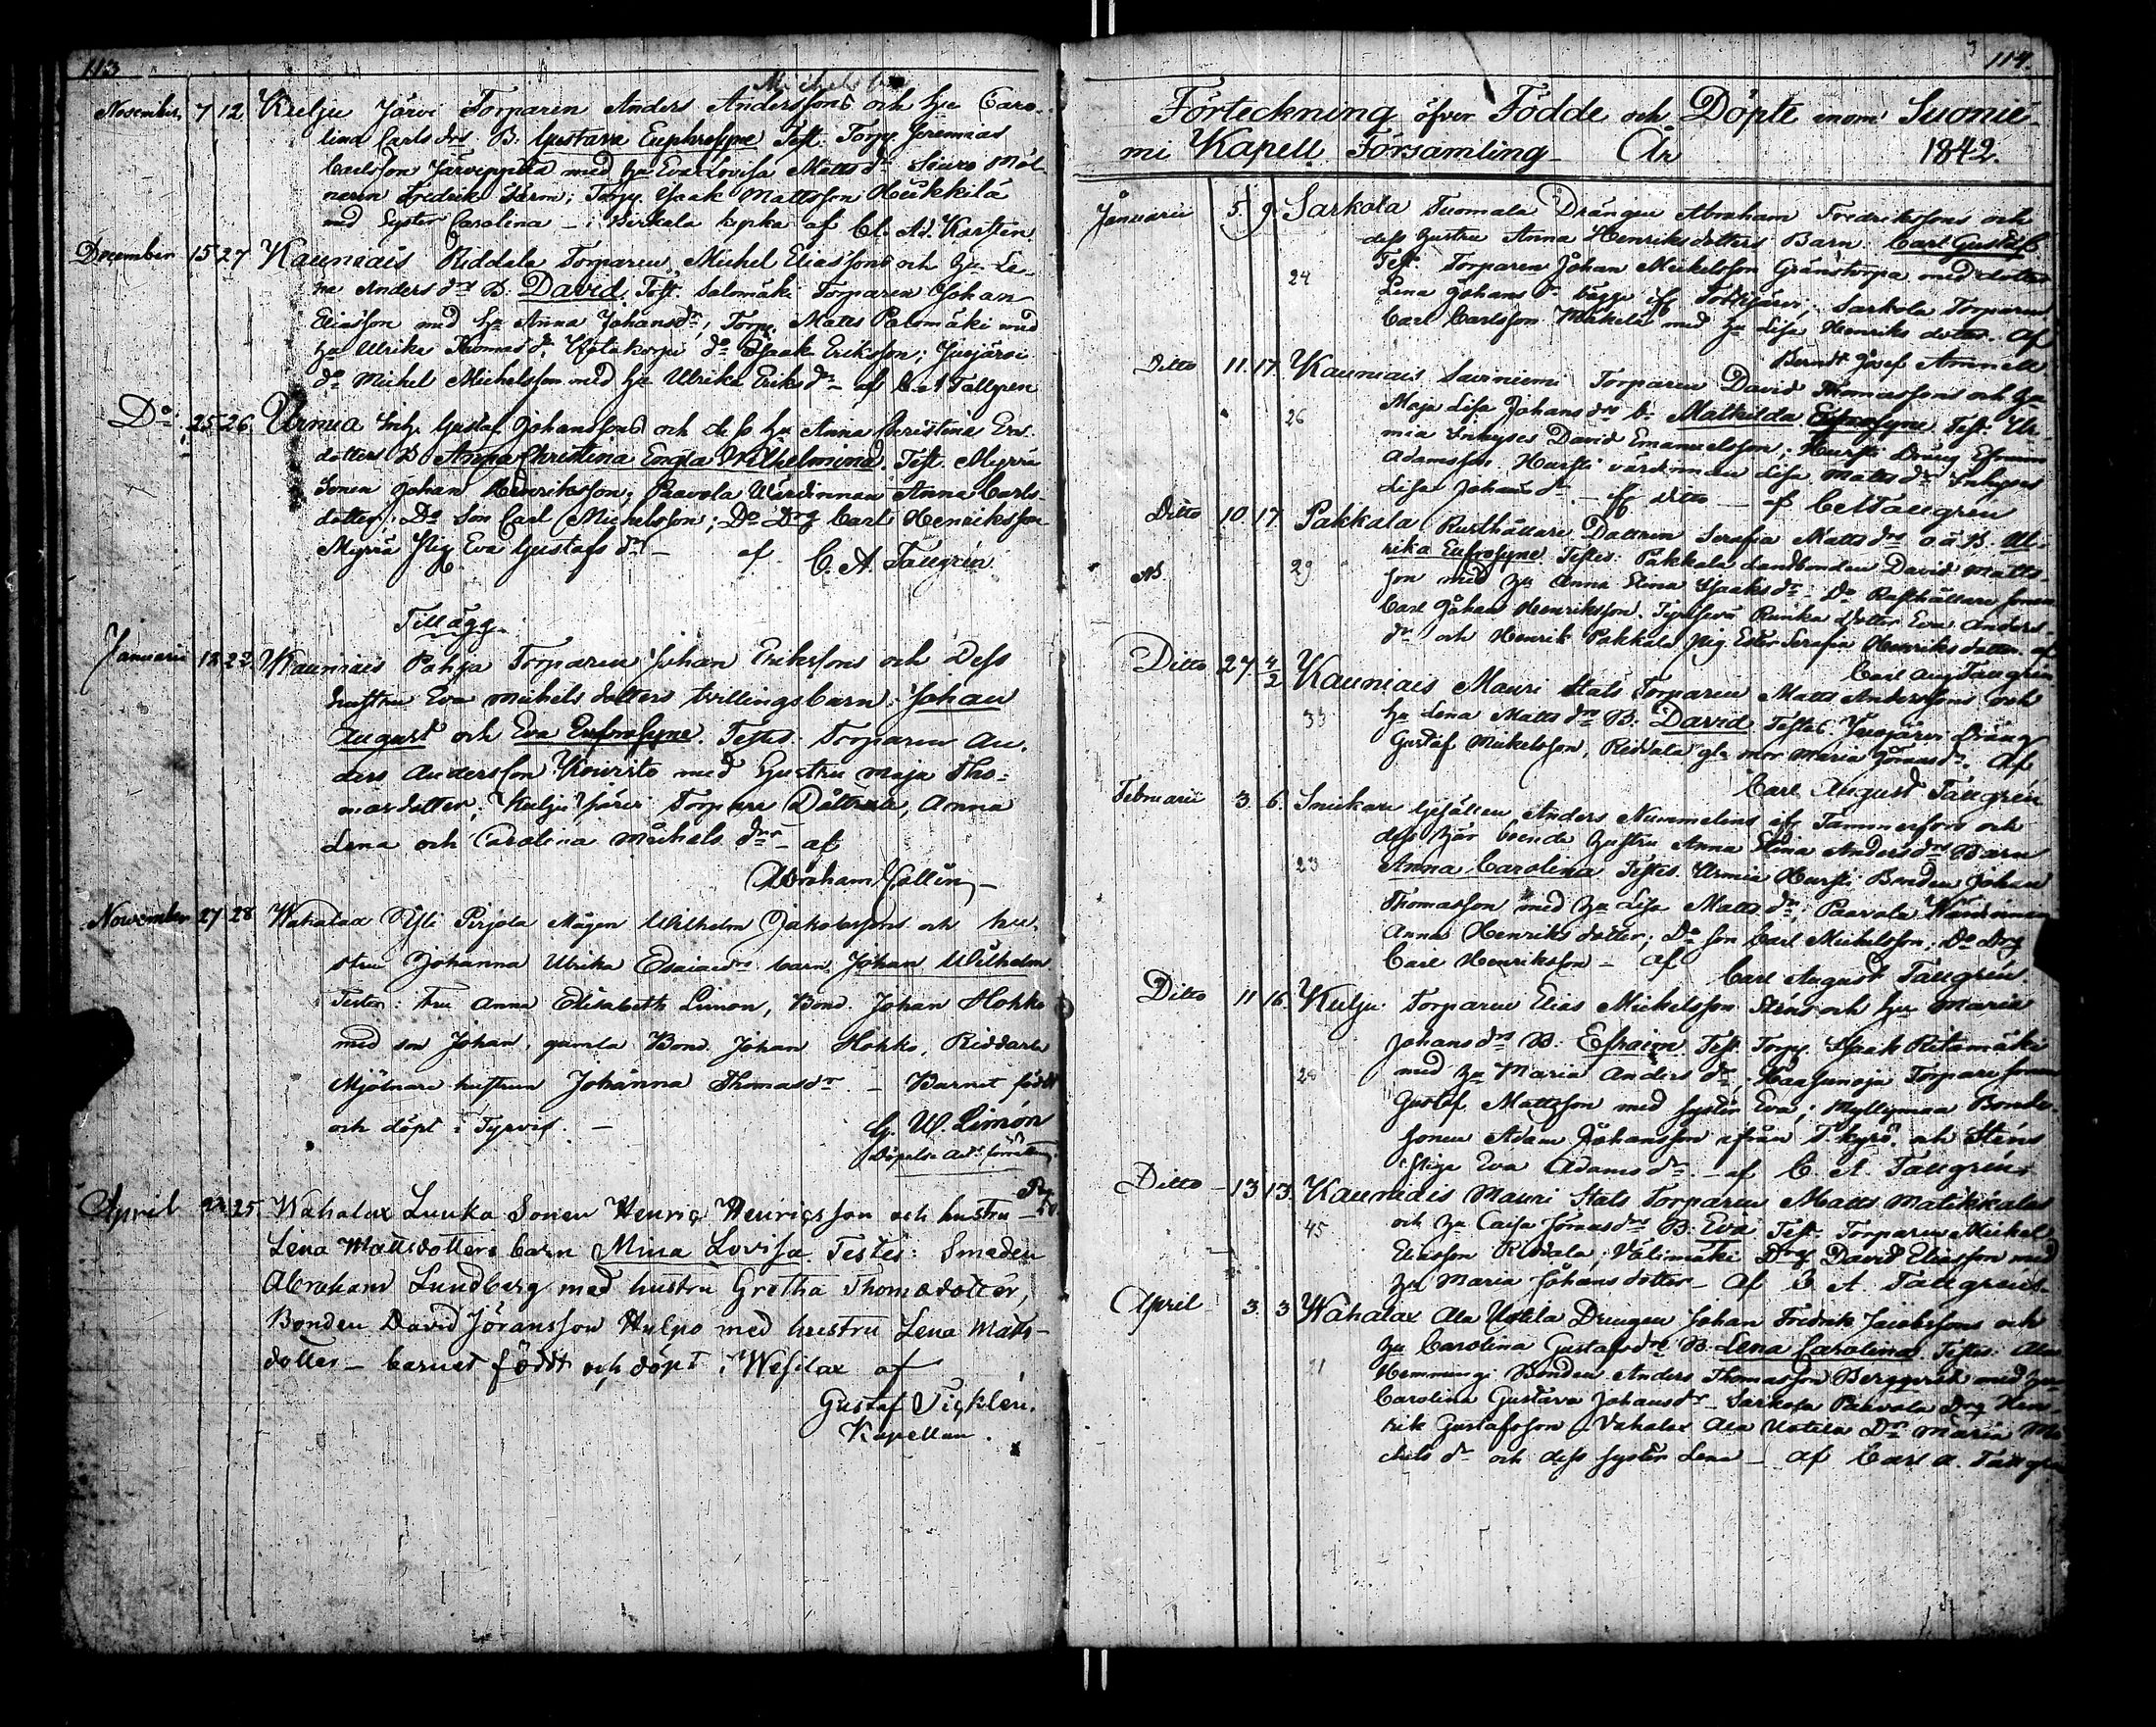 113
Michelsson
November 7 12 Kulju Järvi Torparen Anders Anderssons och hu Caro-
lina Carls drs B. Gustava Euphrosyne Test. Torp. Jeremias
Carlsson Järvenpää med hu Eva Lovisa Matts dr Siuro Möl-
naren Fredrik Särm; Torp. Isaak Mattsson Heikkilä
med syster Carolina – i Birkala kyrka af Cl. Ad. Karsten.
December 15 27 Kauniais Riddala Torparen Michel Eliassons och hu Le-
na Anders drs B. David. Test. Salomäki Torparen Johan
Eliasson med hu Anna Johans dr; Torp. Matts Palomäki med
hu Ulrika Thomas dr, do Isaak Eriksson; Jusjärvi
do Michel Michelsson med hu Ulrika Eriks dr – af C. A. Tallgren
Do 25 26 Urmia Inh. Gustaf Johanssons och dess hu Anna Christina Ers-
dotters B Anna Christina Engla Wilhelmina. Test. Myrrä
Sonen Johan Henriksson; Paavola Wärdinnan Anna Carls-
dotter; Do Son Carl Michelsson; Do Drg Carl Henriksson
Myrrä Pig. Eva Gustafs dr – af C. A. Tallgrén
Tillägg.
Januarii 18 22 Kauniais Pahja Torparen Johan Erikssons och Dess
hustru Eva Michels dotters tvillingsbarn: Johan
August och Eva Eufrosyne. Testes. Torparen An-
ders Andersson Kouvisto med Hustru Maja Tho-
masdotter; Kulju Järvi Torpare Döttrar, Anna
Lena och Carolina Michels drr – af
Abraham Collin –
November 27 28 Wahalax Yli Pirjola Mågen Wilhelm Jakobssons och hu-
stru Johanna Ulrika Esaiædrs barn Johan Wilhelm
Testes: Fru Anna Elisabeth Limon, Bond. Johan Hokko
med son Johan, gamla Bond. Johan Hokko, Riddare
Mjölnare hustrun Johanna Thomasdr – Barnet född
och döpt i Tyrvis. – G. W. Limón
Döpelse Adj: församl.
April 24 25. Wahalax Luuka Sonen Henric Henricsson och hustru –
Lena Mattsdotters barn Mina Lovisa. Testes: Smeden
Abraham Lundberg med hustru Gretha Thomædotter,
Bonden David Jöransson Hulpo med hustru Lena Matts-
dotter – barnet född och döpt i Wesilax af
Gustaf Ticklén.
Kapellan.
114.
Förteckning öfver Födde och Döpte inom Suonie-
mi Kapell Församling År 1842.
Januarii 5. 9. Sarkola Tuomala Drängen Abraham Fredrikssons och
dess hustru Anna Henriksdotters Barn. Carl Gustaf.
24 Test. Torparen Johan Mickelsson Gränstorpa med dotter
Lena Johans dr bägge if. Tottijärvi; Sarkola Torparen
Carl Carlsson Mäkelä med hu Lisa Henriks dotter. Af
Berndt Josef Amnell.
Ditto 11. 17. Kauniais Saviniemi Torparen David Thomassons och hu
Maja Lisa Johans drs b. Mathilda Eufrosyne. Test. Ur-
26 mia Inhyses David Emanuelsson; Hursti Dräng Efraim
Adamsson, Hursti värdinnan Lisa Matts dr Inhyses
Lisa Johans dr – if ditto – af C A Tallgren
Ditto 10 17. Pakkala Rusthållare Dottren Serafia Matts drs o ä B. Ul-
rika Eufrosyne. Testes: Pakkala Landbonden David Matts-
NB. 29 son med hu Anna Stina Isaaks dr – Do Rusthållare sonen
Carl Johan Henriksson, Runka dotter Eva Anders-
dr och Henrik Pakkala pig Ester Serafia Henriks dotter. af
Carl Aug Tallgrén
Ditto 27 4/2 Kauniais Mauri Stats Torparen Matts Anderssons och
33 hu Lena Matts drs B. David Testes. Jusjärvi Dräng
Gustaf Mickelsson, Riddala gla mor Maria Jöransdr. Af
Carl August Tallgrén
Februarii 3. 6. Snickare Gesällen Anders Nummelins af Tammerfors och
dess här boende hustru Anna Stina Anders drs Barn
23 Anna Carolina Testes. Urmia Hursti Bonden Johan
Thomasson med hu Lisa Matts dr, Paavola Wärdinnan
Anna Henriks dotter; Do Son Carl Mickelsson; Do Drg
Carl Henriksson – af Carl August Tallgrén.
Ditto 11 16. Kulju Torparen Elias Mickelsson Sténs och hu Maria
Johans drs B. Efraim Test. Torp. Isaak Ritamäki
28 med hu Maria Anders dr – Haasunoja Torpare sonen
Gustaf Mattsson med syster Eva; Myllymaa Bonde-
sonen Adam Johansson ifrån T.kyrö och Sténs
Piga Eva Adams dr – af C A Tallgrén
Ditto – 13 13. Kauniais Mauri Stats Torparen Matts Matikkalas
45 och hu Caisa Jörans drs B. Eva Test. Torparen Mickel
Eliasson Riddala; Välimäki Drg David Eliasson med
hu Maria Johans dotter – af C. A. Tallgren.
April 3. 3 Wahalax Ala Uotila Drängen Johan Fredrik Jacobssons och
hu Carolina Gustafs drs B. Lena Carolina. Testes: Ala
21 Hemmingi Bonden Anders Thomasson Bergqvist med hu
Carolina Gustava Johans dr – Sarkola Paavola Drg Hen-
rik Gustafsson, Vahalax Ala Uotila Dr Maria Mi-
chels dr och dess syster Lena – af Carl A. Tallgren